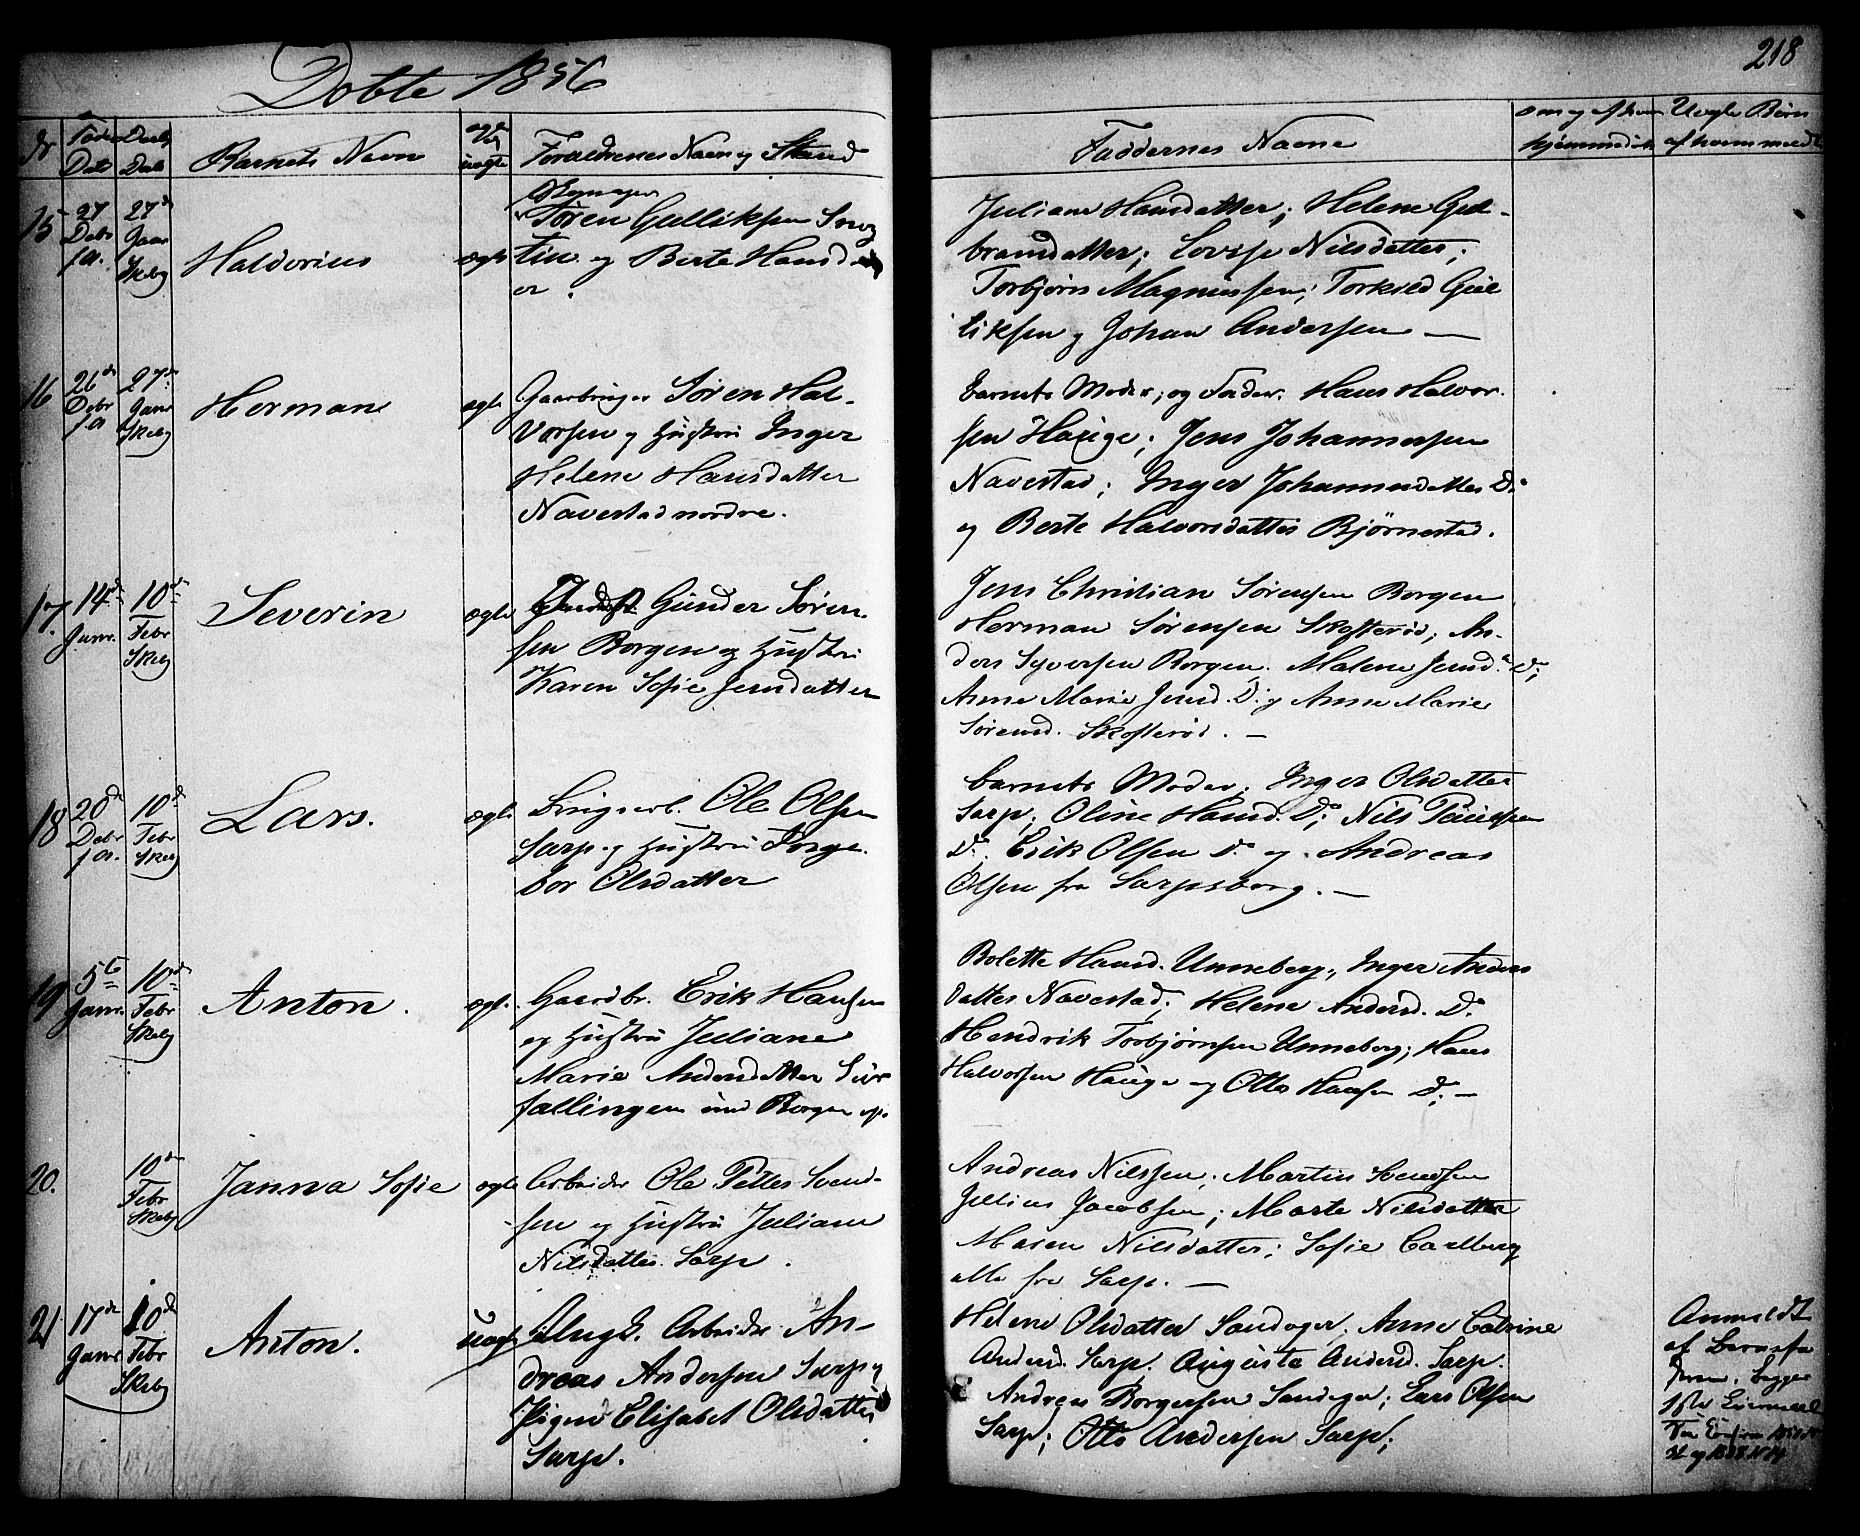 Døbte 1856
218
Nr
Døbt
Dato
Barnets Navn
ægte
uægte
Forældrenes Navn og Stand
Faddernes Navne
om og af hvem
hjemmedøbt
Uægte Børn
af hvem meldt
15
27
Debr
f. A.
27de
Janr
Skeby
Haldorius
ægte
Søren Gulliksen
og Berte Hansdatt
er.
Juliane Hansdatter; Helene Gul-
bransdatter; Lovise Nilsdatter;
Torbjørn Magnussen; Torkild Gul
liksen og Johan Andersen —
16
26de
Debr
f A
27de
Janr
Skeby
Herman
ægte
Gaardbruger Søren Hal-
vorsen og Hustru Inger
Helene Hansdatter
Navestad nordre.
barnets Moder; og Fader. Hans Halvor-
sen Hauge; Jens Johannessen
Navestad; Inger Johannesdatter Do
og Berte Halvorsdatter Bjørnestad.
17.
14de
Janr.
10de
Febr
Skeby
Severin
ægte
Gunder Søren-
sen Borgen og Hustru
Karen Sofie Jensdatter
Jens Christian Sørensen Borgen
Herman Sørensen Skofterød; An-
ders Syversen Borgen; Malene Jensd. Do;
Anne Marie Jensd. Do; og Anne Marie
Sørensd. Skofterød. —
18
20de
Debr
f. A.
10de
Febr
Skeby
Lars.
ægte
Brugserb. Ole Olsen
Sarp og Hustru Torge-
bor Olsdatter
barnets Moder; Inger Olsdatter
Sarp; Oline Hansd. Do; Nils Paulsen
Do; Erik Olsen Do og Andreas
Olsen fra Sarpsborg. —
19
5te
Janr.
10de
Febr
Skeby
Anton.
ægte.
Gaardbr. Erik Hansen
og Hustru Juliane
Marie Andersdatter
fallingen und Borgen
Bolette Hansd. Unneberg; Inger Anders
datter Navestad; Helene Andersd. Do
Hendrik Torbjørnsen Unneberg; Hans
Halvorsen Hauge og Otto Hansen Do. —
20.
10de
Febr
Skeby
Janna Sofie
ægte
Arbeider Ole Petter Svend-
sen og Hustru Juliane
Nilsdatter Sarp.
Andreas Nilssen; Martin Svendsen
Julius Jacobsen; Marte Nilsdatter
Maren Nilsdatter; Sofie Carlberg
alle fra Sarp. —
21
17de
Janr
10de
Febr
Skeby
Anton.
uægte
Ungk. Arbeider An-
dreas Andersen Sarp og
Pigen Elisabet Olsdatter
Sarp.
Helene Olsdatter Sandager. Anne Catrine
Andersd. Sarp. Auguste Andersd. Sarp.
Andreas Borgersen Sandager; Lars Olsen
Sarp; Otto Andersen Sarp;
Anmeldt
af Barnefa
deren. Begges
1ste Leiermaal